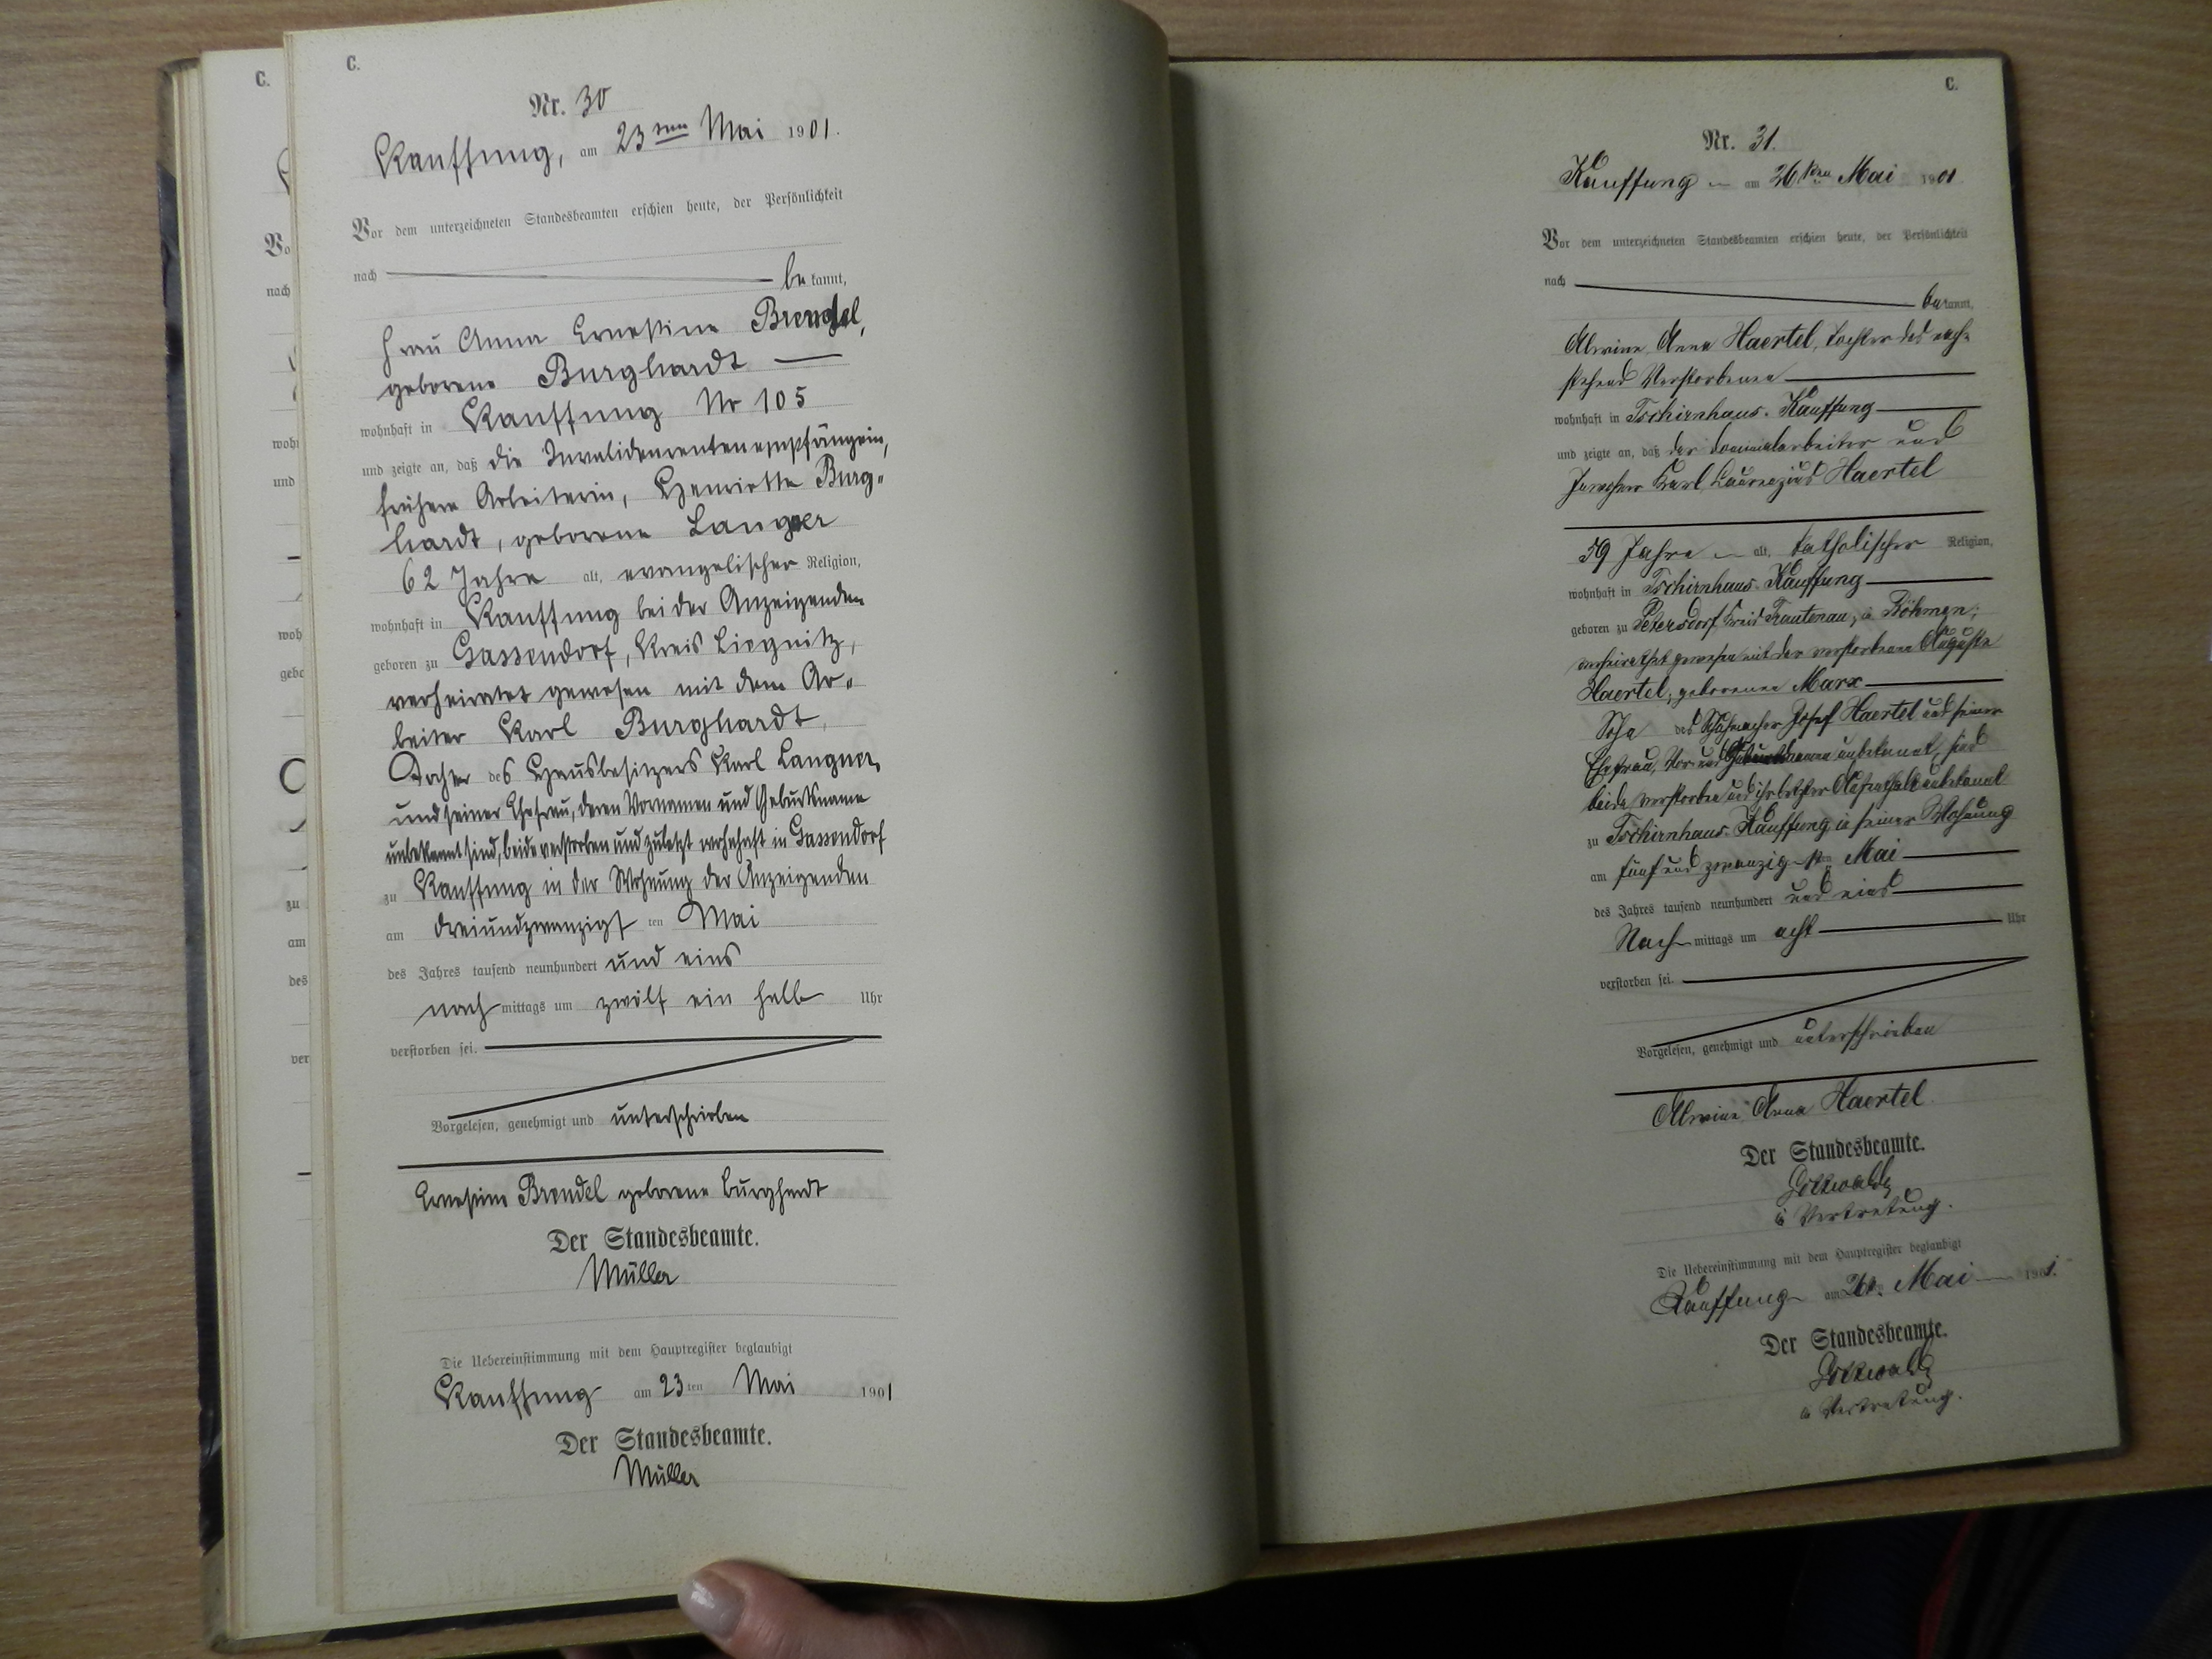 C.
Nr. 30
Kauffung, am 23ten Mai 1901.
Vor dem unterzeichneten Standesbeamten erschien heute, der Persönlichkeit
nach bekannt,
Frau Anna Ernestine Brendel,
geborene Burghardt
wohnhaft in Kauffung Nr 105
und zeigte an, daß die Invalidenrentenempfängerin,
frühere Arbeiterin, Henriette Burg-
hardt, geborene Langner
62 Jahre alt, evangelischer Religion,
wohnhaft in Kauffung bei der Anzeigenden
geboren zu Gassendorf, Kreis Liegnitz,
verheiratet gewesen mit dem Ar-
beiter Karl Burghardt,
Tochter des Hausbesitzers Karl Langner,
und seiner Ehefrau, deren Vornamen und Geburtsname
unbekannt sind, beide verstorben und zuletzt wohnhaft in Gassendorf
zu Kauffung in der Wohnung der Anzeigenden
am dreiundzwanzigsten Mai
des Jahres tausend neunhundert und eins
nachmittags um zwölf ein halb Uhr
verstorben sei.
Vorgelesen, genehmigt und unterschrieben
Ernestine Brendel geborene Burghardt
Der Standesbeamte.
Müller
Die Uebereinstimmung mit dem Hauptregister beglaubigt
Kauffung am 23ten Mai 1901
Der Standesbeamte.
Müller
C.
Nr. 31.
Kauffung am 26ten Mai 1901
Vor dem unterzeichneten Standesbeamten erschien heute, der Persönlichkeit
nach bekannt,
Alwine Anna Haertel, Tochter des nach-
stehend Verstorbenen
wohnhaft in Tschirnhaus-Kauffung
und zeigte an, daß der Dominialarbeiter und
Inwohner Karl Laurenzius Haertel
59 Jahre alt, katholischer Religion,
wohnhaft in Tschirnhaus-Kauffung
geboren zu Petersdorf Kreis Trautenau, in Böhmen,
verheirathet gewesen mit der verstorbenen Auguste
Haertel, geborenen Marx
Sohn des Schuhmacher Josef Haertel und seiner
Ehefrau, Vor und Geburtsname unbekannt, sind
beide verstorben und ihr letzter Aufenthalt unbekannt
zu Tschirnhaus-Kauffung in seiner Wohnung
am fünf und zwanzigsten Mai
des Jahres tausend neunhundert und eins
Nachmittags um acht Uhr
verstorben sei.
Vorgelesen, genehmigt und unterschrieben
Alwine Anna Haertel
Der Standesbeamte.
in Vertretung.
Die Uebereinstimmung mit dem Hauptregister beglaubigt
Kauffung am 26. Mai 1901.
Der Standesbeamte.
in Vertretung.
C.